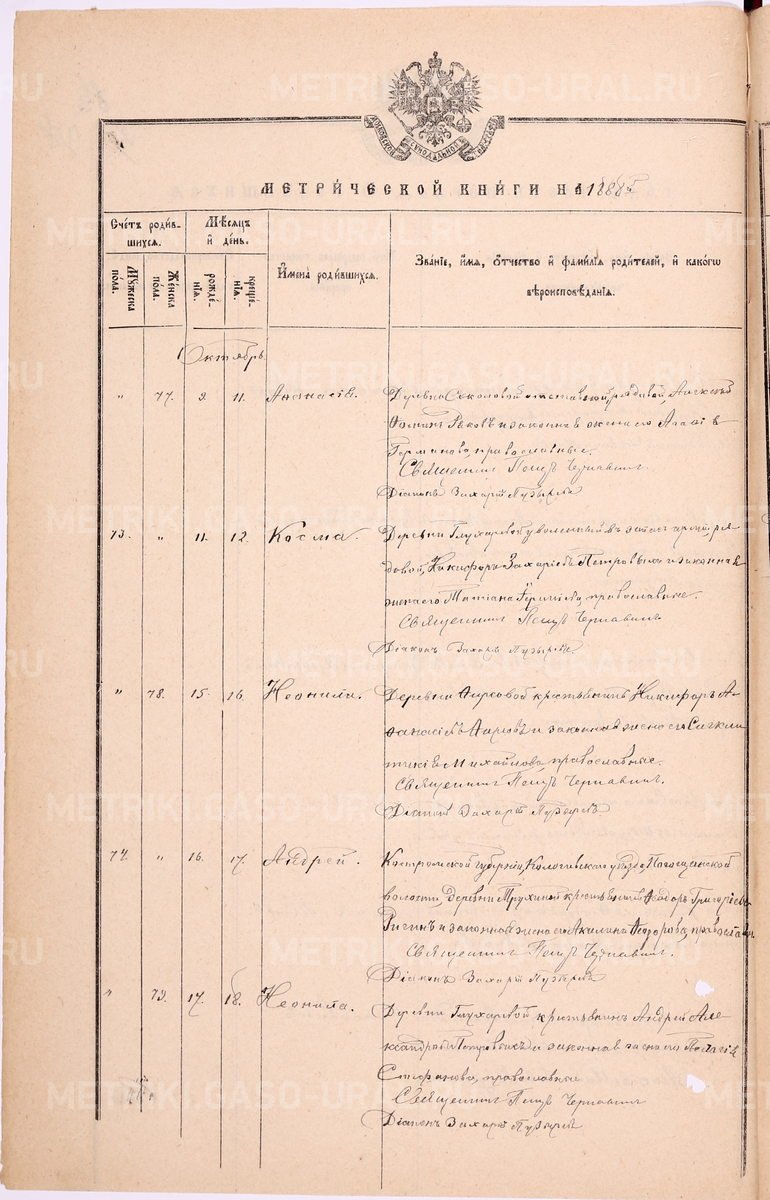 МЕТРИ́ЧЕСКОЙ КНИ́ГИ НА 1888
Счетъ роди́вшихся.
Мѣсяцъ и́ де́нь.
Имена̀ роди́вшихся.
Зва́ніе, и́мя, о́тчество и́ фами́лія роди́телей, и́ како́гѡ вѣроисповѣ́данія.
Мꙋжеска по́ла.
Же́нска по́ла.
рожде́нія.
креще́нія.
Октябрь
" 77. 9. 11. Анастасія. Деревни Соколовой отставной рядовой Алексѣй
Фоминъ и законная жена его Агаѳія
Германова, православные.
Священникъ Петръ Чернавинъ.
Діаконъ Захарій Пузыревъ
73. " 11. 12. Косма. Деревни Глухаревой уволенный въ запасъ арміи, ря-
довой, Никифоръ Захаріевъ Петровыхъ и законная
жена его Татіана православные.
Священникъ Петръ Чернавинъ
Діаконъ Захарій Пузыревъ
" 78. 15. 16. Неонилла. Деревни крестьянинъ Никифоръ Аѳ-
анасіевъ и законная жена его Сигкли-
тикія Михайлова, православные.
Священникъ Петръ Чернавинъ.
Діаконъ Захарій Пузыревъ
74. " 16. 17. Андрей. Костромской губерніи, Кологривскаго уѣзда,
волости, Деревни крестьянинъ Ѳеодоръ Григорьевъ
и законная жена его Акилина Ѳеодорова, православн
Священникъ Петръ Чернавинъ.
Діаконъ Захарій Пузыревъ
" 79. 17. 18. Неонила. Деревни Глухаревой крестьянинъ Андрей Але-
ксандровъ Петровыхъ и законная жена его Пелагія
Стефанова, православные
Священникъ Петръ Чернавинъ
Діаконъ Захарій Пузыревъ
METRIKI.GASO-URAL.RU